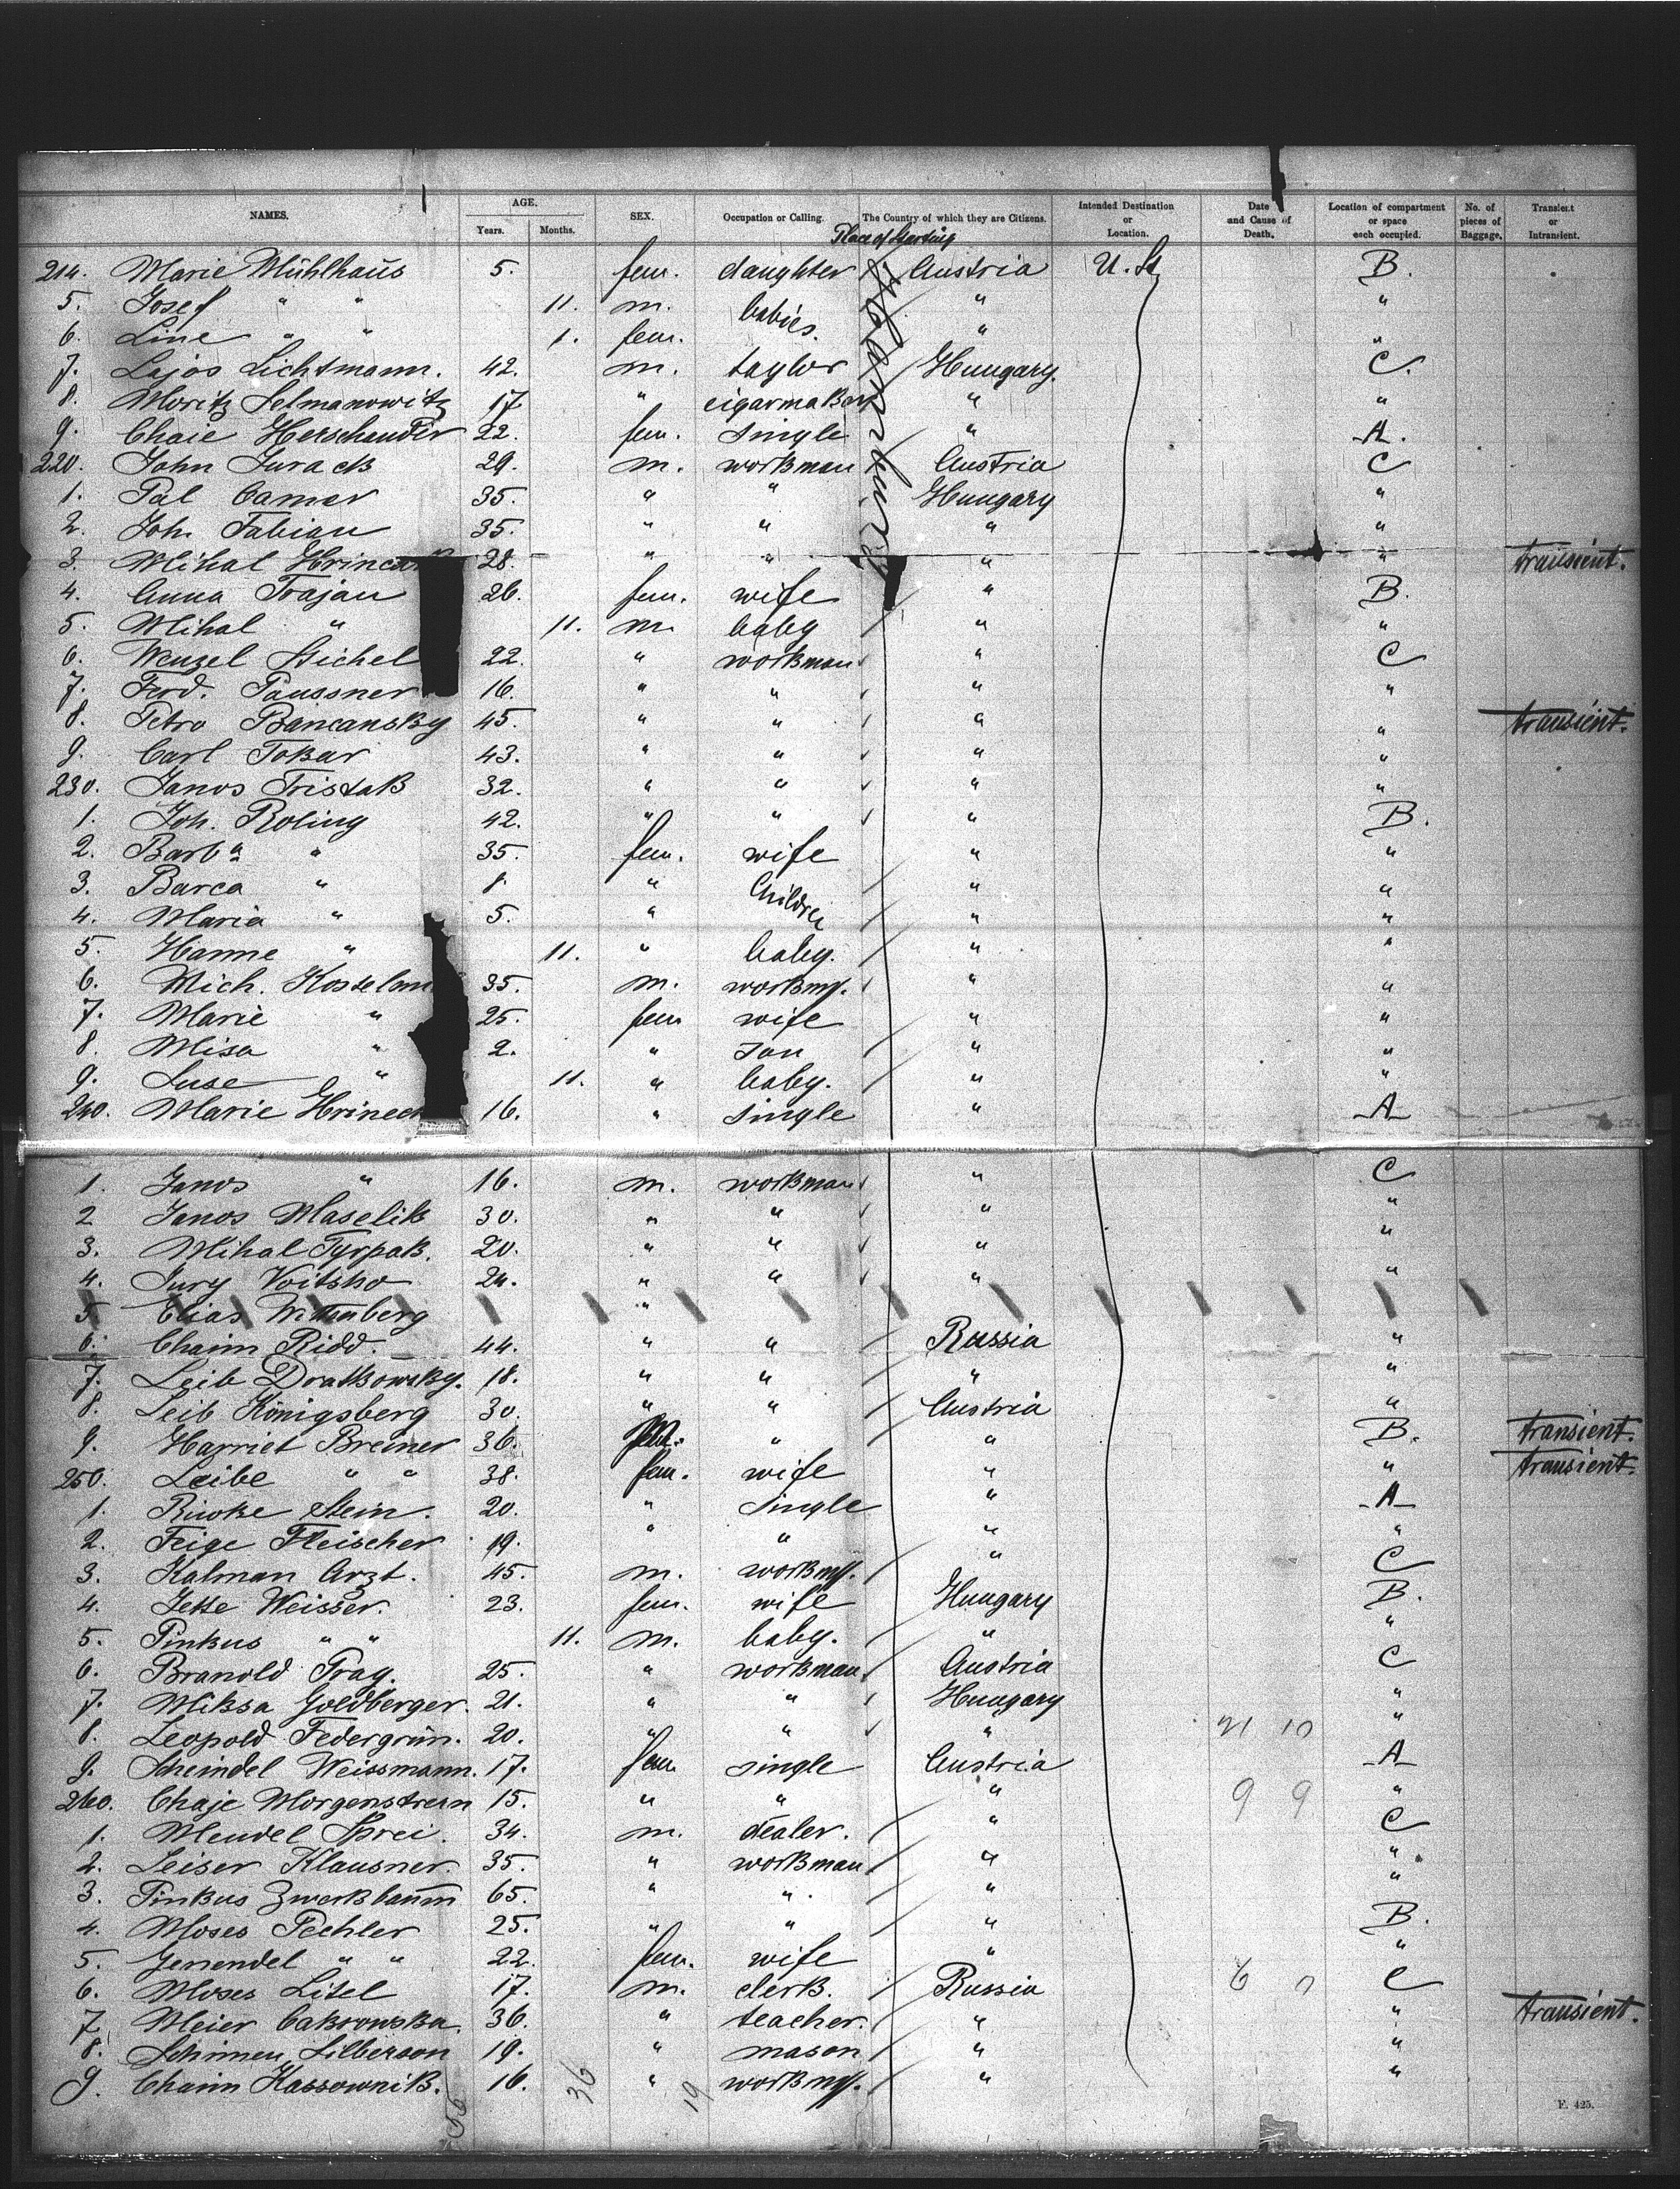 NAMES. AGE. Years. Months. SEX. Occupation or Calling. The Country of which they are Citizens. Intended Destination or Location. Date and Cause of Death. Location of compartment or space each occupied. No. of pieces of Baggage. Transient or Intransient.
Place of Starting
214. Marie Mühlhaus 5. fem. daughter Austria U. St. B.
5. Josef " " 11. m. babies " "
6. Line " " 1. fem. " "
7. Lajos Lichtmann. 42. m. taylor Hungary. C.
8. Moritz Selmanowitz 17 " cigarmaker " "
9. Chaie Herschander 22. fem. single " A.
220. John Jurack 29. m. workman Austria C
1. Pal Camer 35. " " Hungary "
2. Joh. Fabian 35. " " " "
3. Mihal 28. " " " " transient.
4. Anna Trajan 26. fem. wife " B.
5. Mihal " 11. m. baby " "
6. Wenzel Stichel 22. " workman " C
7. Ferd. Paussner 16. " " " "
8. Petro Bancansky 45. " " " " transient.
9. Carl Tokar 43. " " " "
230. Janos Tristak 32. " " " "
1. Joh. Roling 42. " " " B.
2. Barba " 35. fem. wife " "
3. Barca " 8. " Children " "
4. Maria " 5. " " "
5. Hanne " 11. " baby. " "
6. Mich. 35. m. workmn. " "
7. Marie " 25. fem wife " "
8. Misa " 2. " son " "
9. Suse " 11. " baby. " "
240. Marie 16. " single " A
1. Janos " 16. m. workman " C
2 Janos Maselik 30. " " " "
3. Mihal Tyrpak. 20. " " " "
4. Jury Voitsko 24. " " " "
5. Elias Wittenberg "
6. Chaim Ridd. 44. " " Russia "
7. Leib Dratkowsky. 18. " " " "
8. Leib Königsberg 30. " " Austria "
9. Harriet Breiner 36. " " B. transient.
250. Leibe " " 38. fem. wife " " transient.
1. Riwke Stein. 20. " single " A
2. Feige Fleischer 19. " " " "
3. Kalman Arzt. 45. m. workmn. " C
4. Jette Weisser. 23. fem. wife Hungary B.
5. Pinkus " " 11. m. baby. " "
6. Branold Prag. 25. " workman Austria C
7. Miksa Goldberger. 21. " " Hungary "
8. Leopold Federgrün. 20. " " " 21 10 "
9. Scheindel Weissmann. 17. fem single Austria A
260. Chaje Morgenstern 15. " " " 9 9 "
1. Mendel Sprei. 34. m. dealer. " C
2. Leiser Klausner. 35. " workman " "
3. Pinkus Zwerkbaum 65. " " " "
4. Moses Pechler 25. " " " B.
5. Genendel " " 22. fem. wife " "
6. Moses Litel 17. m. clerk. Russia 6 0 C
7 Meier Cakrowska. 36. " teacher. " " transient.
8. Schimen Silberson 19. " mason " "
9. Chaim Kassownik. 16. " workmn. " "
56 36 19
F. 425.